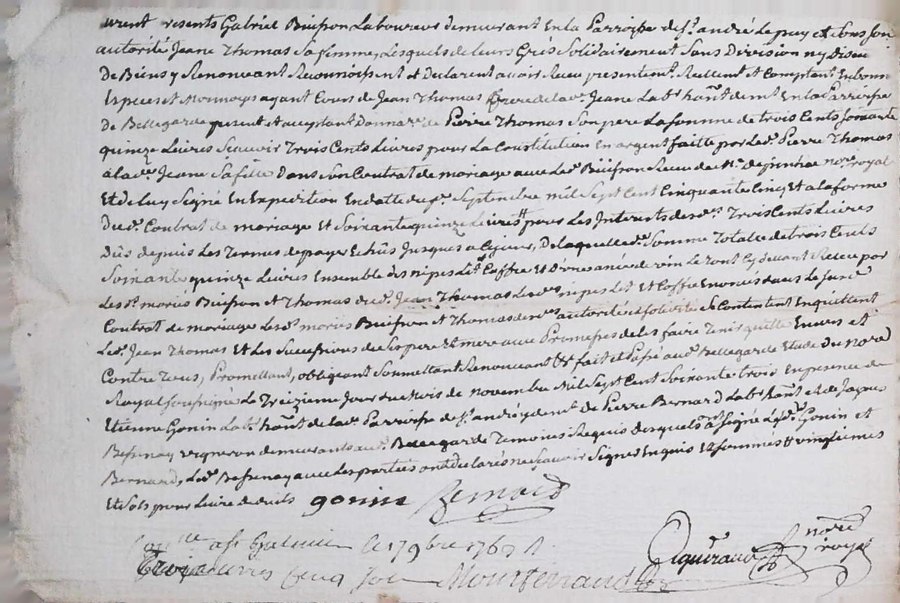 urent presents Gabriel Buisson Laboureur demeurant En la Parroisse de St. andré Le puy et sous son
autorité Jeane Thomas Sa femme, Lesquels de Leurs Grés Solidairement Sans Division ny Discu
de Biens y Renonceant Reconnoissent et Declarent avoir Receu presentemt. Reellemt. et Comptant En bonn
Especes et Monnoye ayant Cours de Jean Thomas frere de lade. Jeane Labr. hañt demt. En la Parroisse
de Bellegarde present et acceptant Des de Pierre Thomas Son pere La somme de trois Cents Soixante
quinze Livres Scavoir Trois Cents Livres pour La Constitution En argent faitte par Led. Pierre Thomas
a lade. Jeane Sa fille Dans Son Contrat de mariage avec Led. Buisson Receu de Me. nore. royal
Et de Luy Signé En Expedition En datte du Septembre mil Sept Cent Cinquante Cinq Et a la forme
Dud. Contrat de mariage Et Soixante quinze Livres pour Les Interets desd. Trois Cents Livres
Dûs depuis Les Termes de payer Echûs Jusques a Ce jour, De laquelle de. Somme Totalle de trois Cents
Soixante quinze Livres Ensemble des nipes Lit Coffre Et D'one anée de vin Le tout Cy devant Receu par
Les d. mariés Buisson et Thomas dud. Jean Thomas Lesd. nipes Lit Et Coffre Enoncés dans Le Susd.
Contrat de mariage Lesd. mariés Buisson et Thomas autorité Se Contentent En quittent
Led. Jean Thomas Et Les Successions de Ses pere Et mere avec Promesses de les faire Tenir quitte Envers et
Contre Tous, Promettant, obligeant Soumettant Renonceant &c fait et Passé aud. Bellegarde Etude du nore.
Royal Soussigné Le Treizieme Jour du Mois de novembre Mil Sept Cent Soixante trois En presence de
Etienne Gonin Labr. hañt de lad. Parroisse de St. andré y demt. de Pierre Bernard Labr. hañt et de Jaque
Bessenay vigneron demeurants aud. Bellegarde Temoins Requis desquels a Signé Led. Gonin et
Bernard, Led. Bessenay avec Les parties ont declarés ne Scavoir Signer Enquis Et Sommés Et vingtiemes
Et Sols pour Livre de droits gonin Bernard
Con lle a St Galmier Le 17 9bre 1763 R
Trois Livres Cinq Sols Montferrand
nore royal